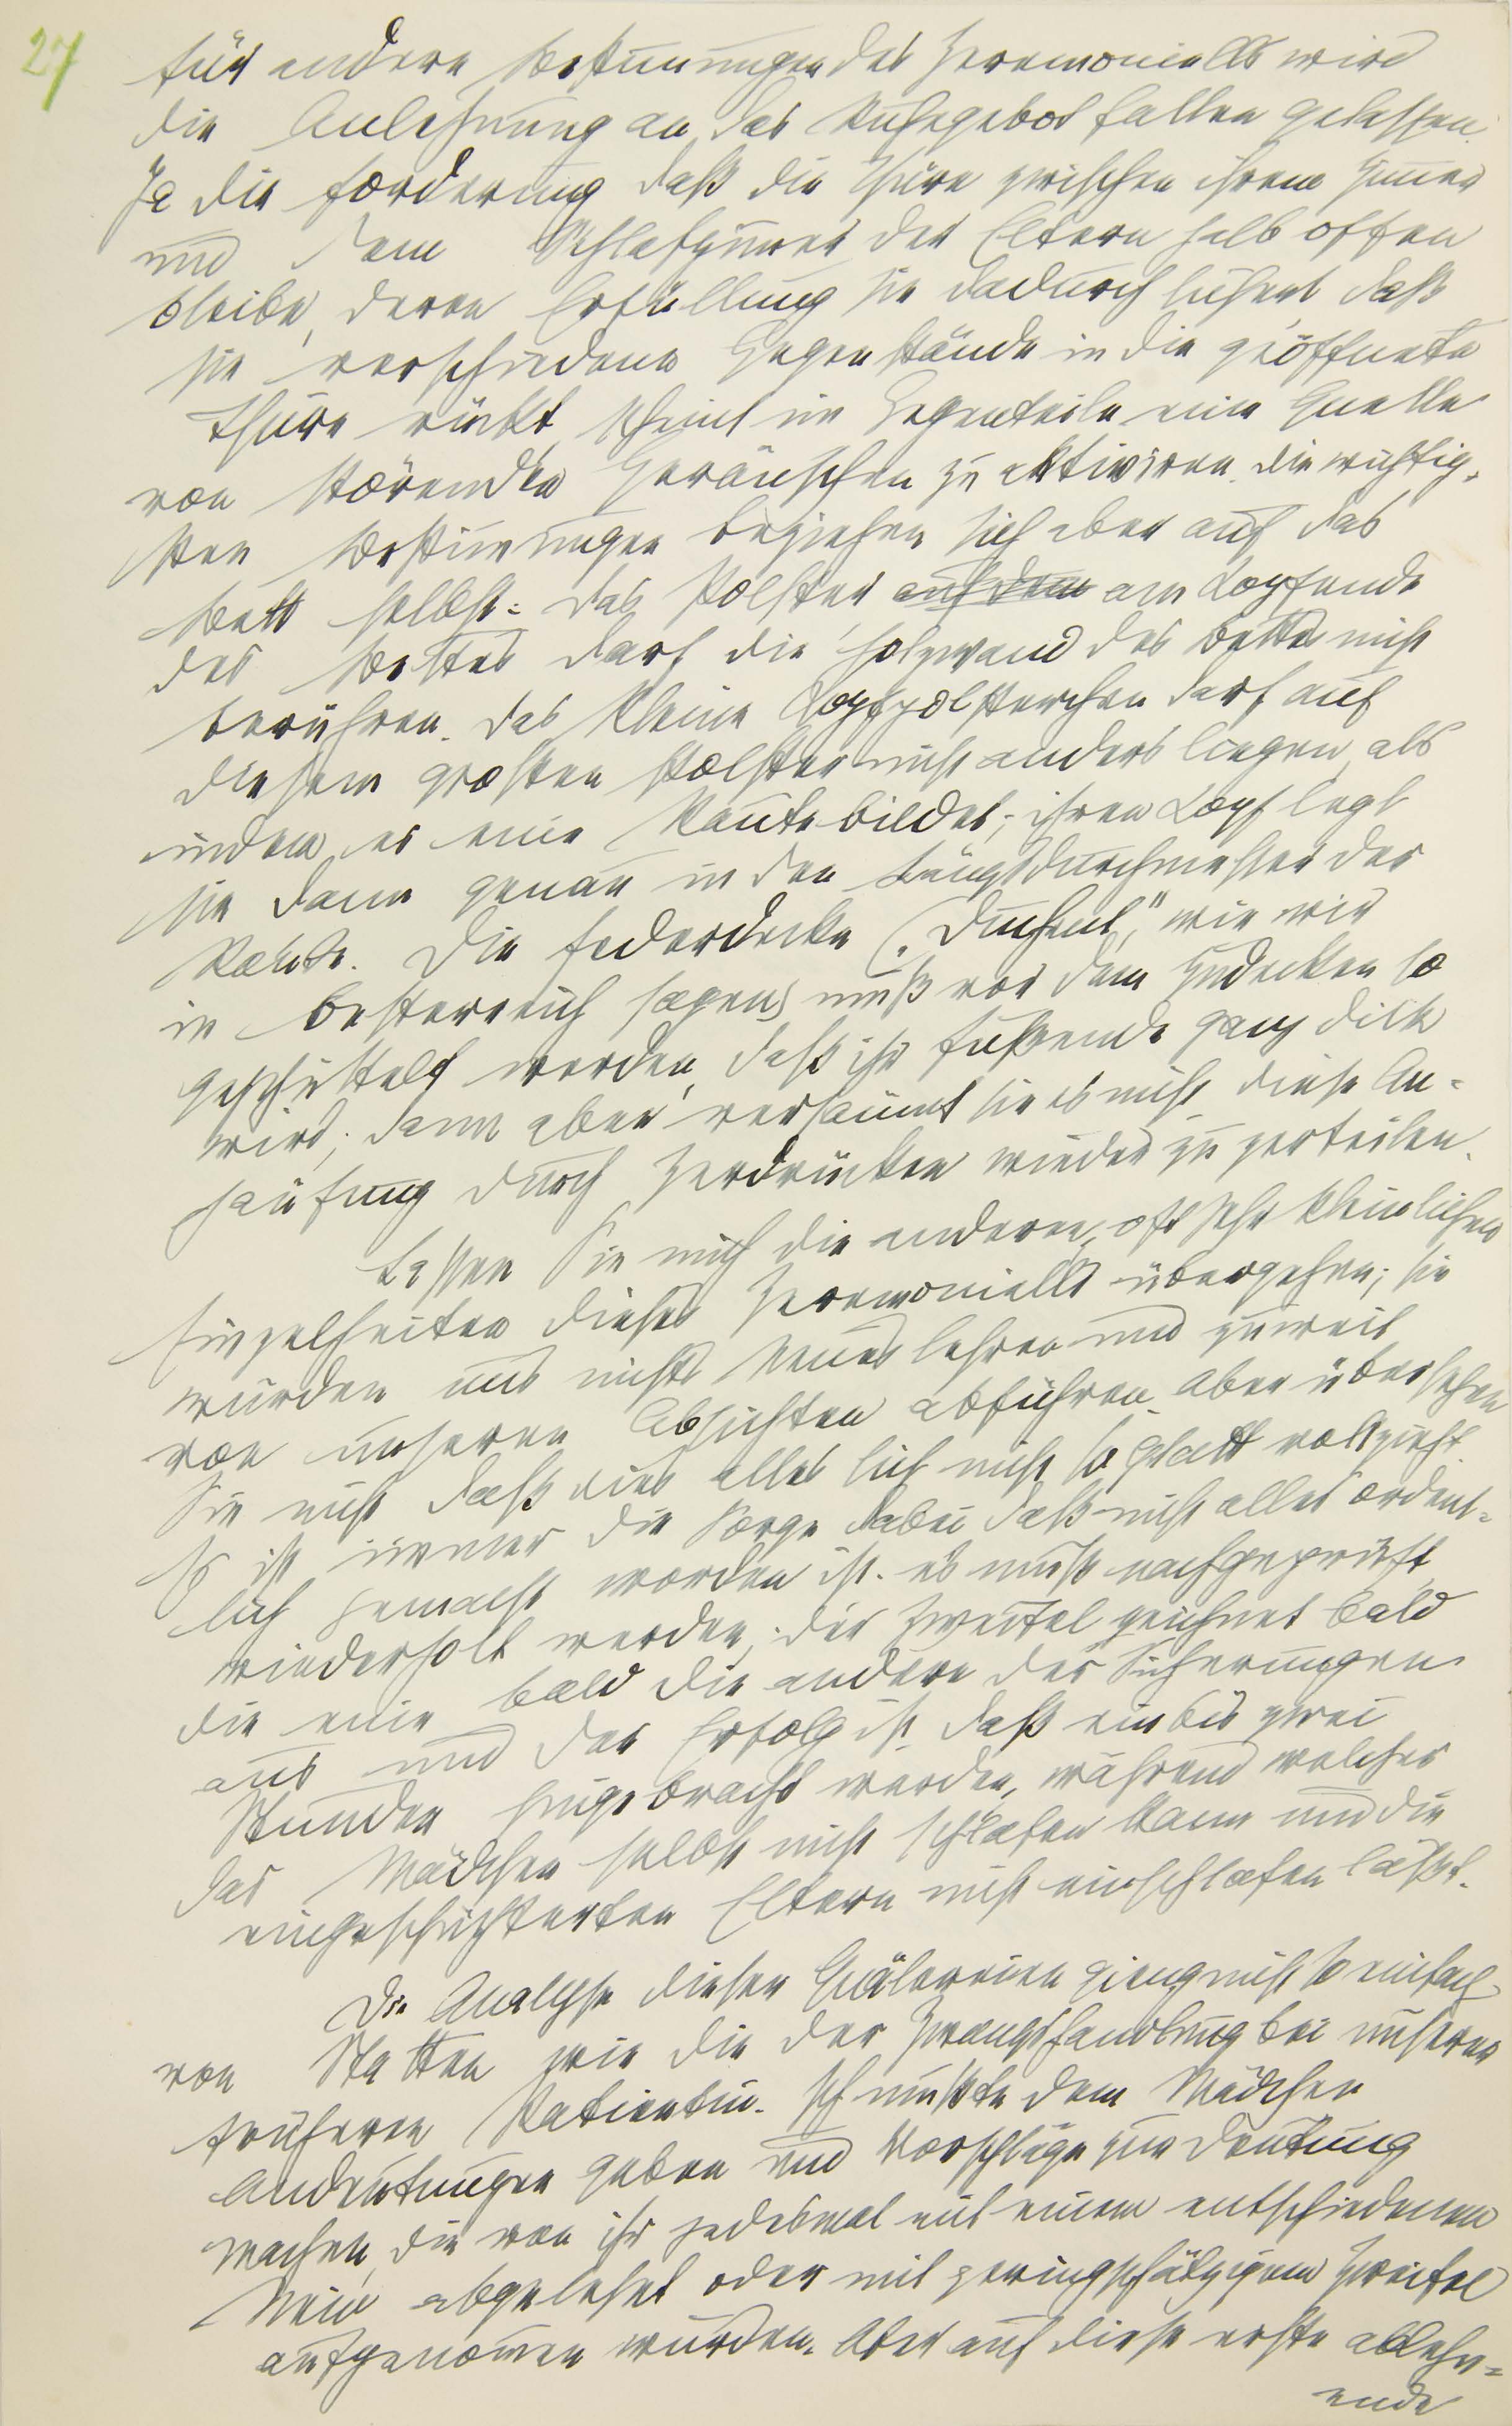 27
Für andere Bestimmungen des Zeremoniells wird
die Anlehnung an das Ruhegebot fallen gelassen.
Ja die Forderung daß die Thüre zwischen ihrem Zimmer
und dem Schlafzimmer der Eltern halb offen
bleibe, deren Erfüllung sie dadurch sichert, daß
sie verschiedene Gegenstände in die geöffnete
Thüre rückt, scheint im Gegenteile eine Quelle
von störenden Geräuschen zu aktiviren. Die wichtig-
sten Bestimmungen beziehen sich aber auf das
Bett selbst. Das Polster auf dem am Kopfende
des Bettes darf die Holzwand des Bettes nicht
berühren. Das kleine Kopfpölsterchen darf auf
diesem großen Polster nicht anders liegen, als
indem es eine Raute bildet; ihren Kopf legt
sie dann genau in den Längsdurchmesser der
Raute. Die Federdecke („Duchent“, wie wir
in Oesterreich sagen) muß vor dem Zudecken so
geschüttelt werden, daß ihr Fußende ganz dick
wird, dann aber versäumt sie es nicht diese An-
häufung durch Zerdrücken wieder zu zerteilen.
Lassen Sie mich die anderen, oft sehr kleinlichen
Einzelheiten dieses Zeremoniells übergehen; sie
würden uns nichts Neues lehren und zuweit
von unseren Absichten abführen. Aber übersehen
Sie nicht daß dies alles sich nicht so glatt vollzieht.
Es ist immer die Sorge dabei daß nicht alles ordent-
lich gemacht worden ist. es muß nachgeprüft,
wiederholt werden, der Zweifel zeichnet bald
die eine bald die andere der Sicherungen
aus und der Erfolg ist, daß ein bis zwei
Stunden hingebracht werden, während welcher
das Mädchen selbst nicht schlafen kann und die
eingeschüchterten Eltern nicht einschlafen läßt.
Die Analyse dieser Quälereien gieng nicht so einfach
von Statten wie die der Zwangshandlung bei unserer
früheren Patientin. Ich mußte dem Mädchen
Andeutungen geben und Vorschläge zur Deutung
machen, die von ihr jedesmal mit einem entschiedenen
Nein abgelehnt oder mit geringschätzigem Zweifel
aufgenommen wurden. Aber auf diese erste ablehn-
ende